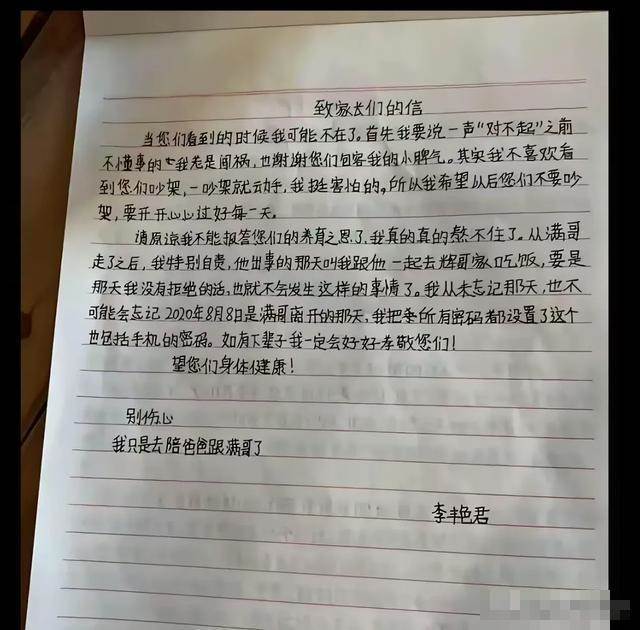 致家长们的信
当您们看到的时候我可能不在了。首先我要说一声“对不起”之前
不懂事的我老是闯祸，也谢谢您们包容我的小脾气。其实我不喜欢看
到您们吵架，一吵架就动手，我挺害怕的，所以我希望以后您们不要吵
架，要开开心心过好每一天。
请原谅我不能报答您们的养育之恩了，我真的真的熬不住了。从满哥
走了之后，我特别自责，他出事的那天叫我跟他一起去辉哥家吃饭，要是
那天我没有拒绝的话，也就不会发生这样的事情了。我从未忘记那天，也不
可能会忘记2020年8月8日是满哥离开的那天，我把所有密码都设置了这个
也包括手机的密码。如有下辈子我一定会好好孝敬您们！
望您们身体健康！
别伤心
我只是去陪爸爸跟满哥了
李艳君